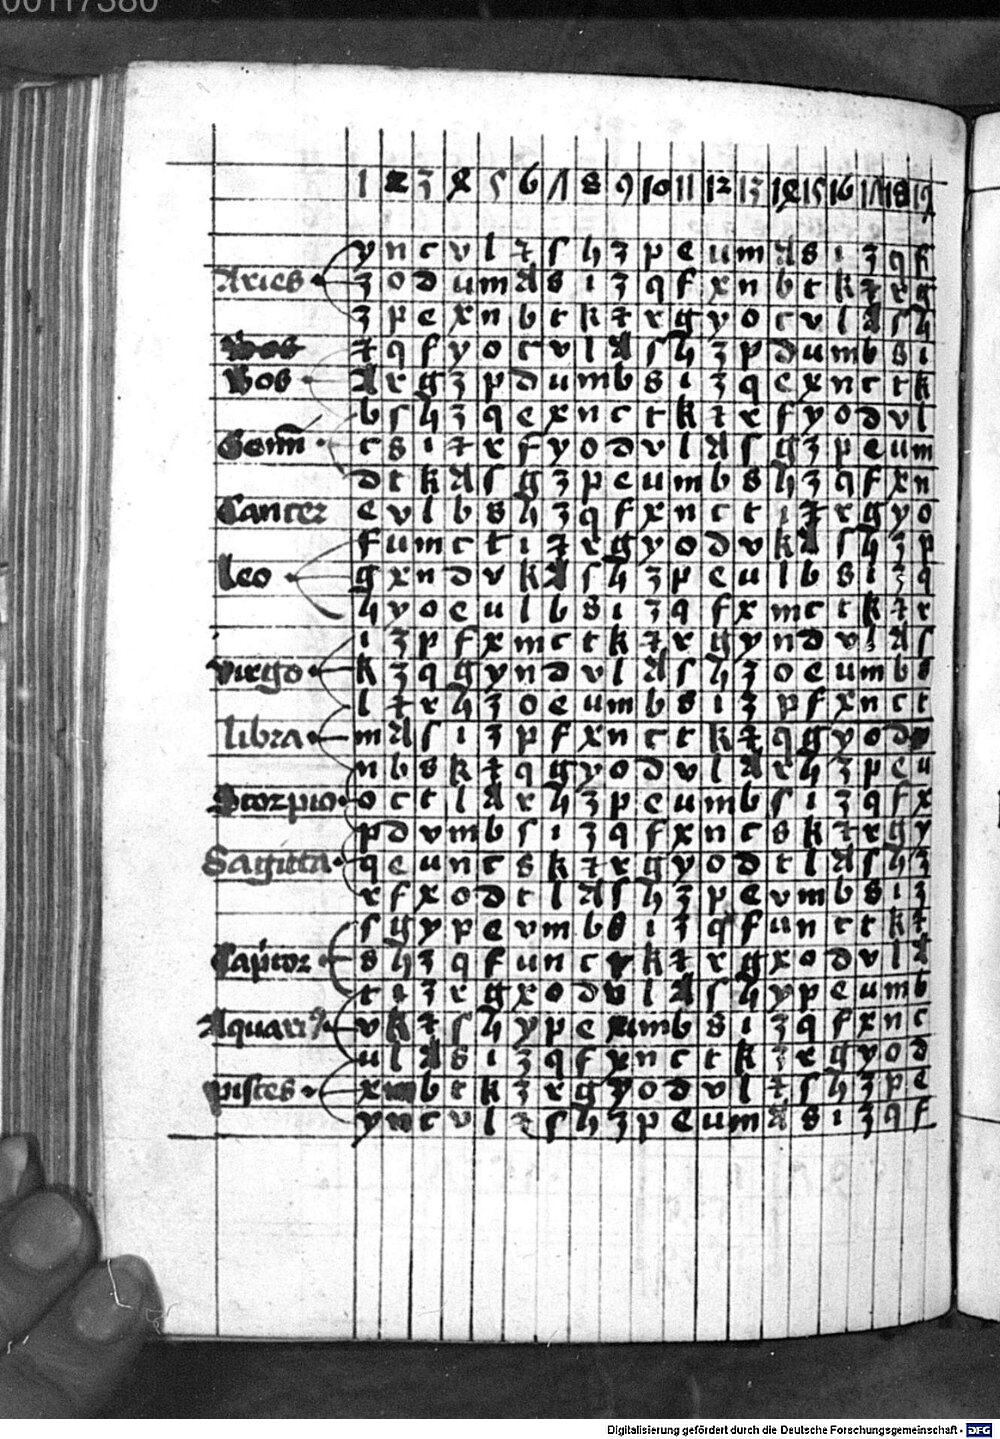 00117380
1 2 3 4 5 6 7 8 9 10 11 12 13 14 15 16 17 18 19
y n c v l ꝛ ſ h 3 p e u m A s i 3 q f
Aries 3 o d u m A s i 3 q f x n b t k ꝛ r g
3 p e x n b t k ꝛ r g y o c v l A ſ h
ꝛ q f y o c v l A ſ h 3 p d u m b s i
Bos A r g 3 p d u m b s i 3 q e x n c t k
b ſ h 3 q e x n c t k ꝛ r f y o d v l
Gemi c s i ꝛ r f y o d v l A ſ g 3 p e u m
d t k A ſ g 3 p e u m b s h 3 q f x n
Cancer e v l b s h 3 q f x n c t i ꝛ r g y o
f u m c t i ꝛ r g y o d v k A ſ h 3 p
leo g x n d v k A ſ h 3 p e u l b s i 3 q
h y o e u l b s i 3 q f x m c t k ꝛ r
i 3 p f x m c t k ꝛ r g y n d v l A ſ
virgo k 3 q g y n d v l A ſ h 3 o e u m b s
l ꝛ r h 3 o e u m b s i 3 p f x n c t
libra m A ſ i 3 p f x n c t k ꝛ q g y o d v
n b s k ꝛ q g y o d v l A r h 3 p e u
Scorpio o c t l A r h 3 p e u m b ſ i 3 q f x
p d v m b ſ i 3 q f x n c s k ꝛ r g y
Sagitta q e u n c s k ꝛ r g y o d t l A ſ h 3
r f x o d t l A ſ h 3 p e v m b s i 3
ſ g y p e v m b s i 3 q f u n c t k ꝛ
Capicor s h 3 q f u n c t k ꝛ r g x o d v l A
t i 3 r g x o d v l A ſ h y p e u m b
Aquariꝯ v k ꝛ ſ h y p e u m b s i 3 q f x n c
u l A s i 3 q f x n c t k 3 r g y o d
pisces x m b t k 3 r g y o d v l ꝛ ſ h 3 p e
y n c v l ꝛ ſ h 3 p e u m A s i 3 q f
Digitalisierung gefördert durch die Deutsche Forschungsgemeinschaft - DFG